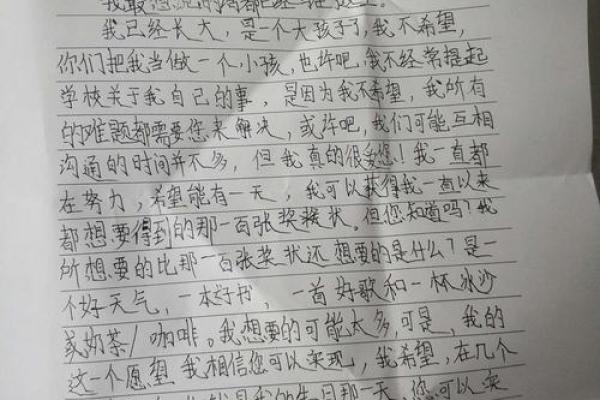 我最想说的话都已经写在这上。
我已经长大，是一个大孩子了，我不希望，
你们把我当做一个小孩，也许吧，我不经常提起
学校关于我自己的事，是因为我不希望，我所有
的难题都需要您来解决，或许吧，我们可能互相
沟通的时间并不多，但我真的很爱您！我一直都
在努力，希望能有一天，我可以获得我一直以来
都想要得到的那一百张奖状。但您知道吗？我
所想要的比那一百张奖状还想要的是什么？是一
个好天气，一本好书，一首好歌和一杯冰沙
或奶茶/咖啡。我想要的可能太多，可是，我的
这一个愿望我相信您可以实现，我希望，在几个
就是我的生日那一天，您可以实